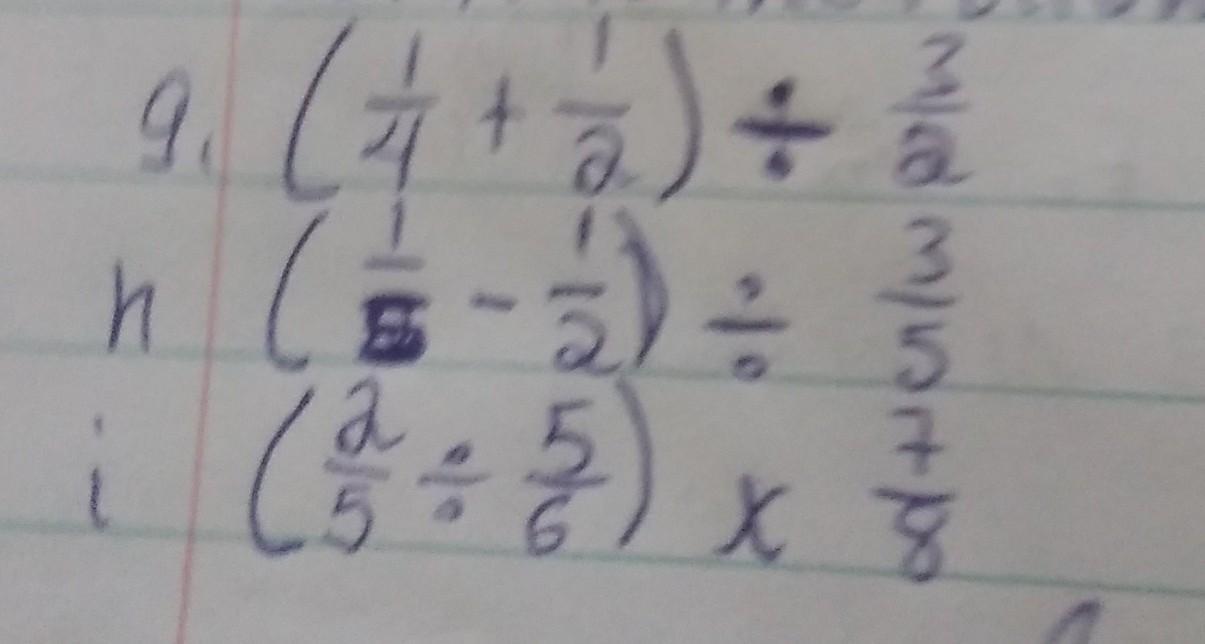 g. (1/4 + 1/2) ÷ 3/2
h (1/ - 1/2) ÷ 3/5
i (2/5 ÷ 5/6) x 7/8